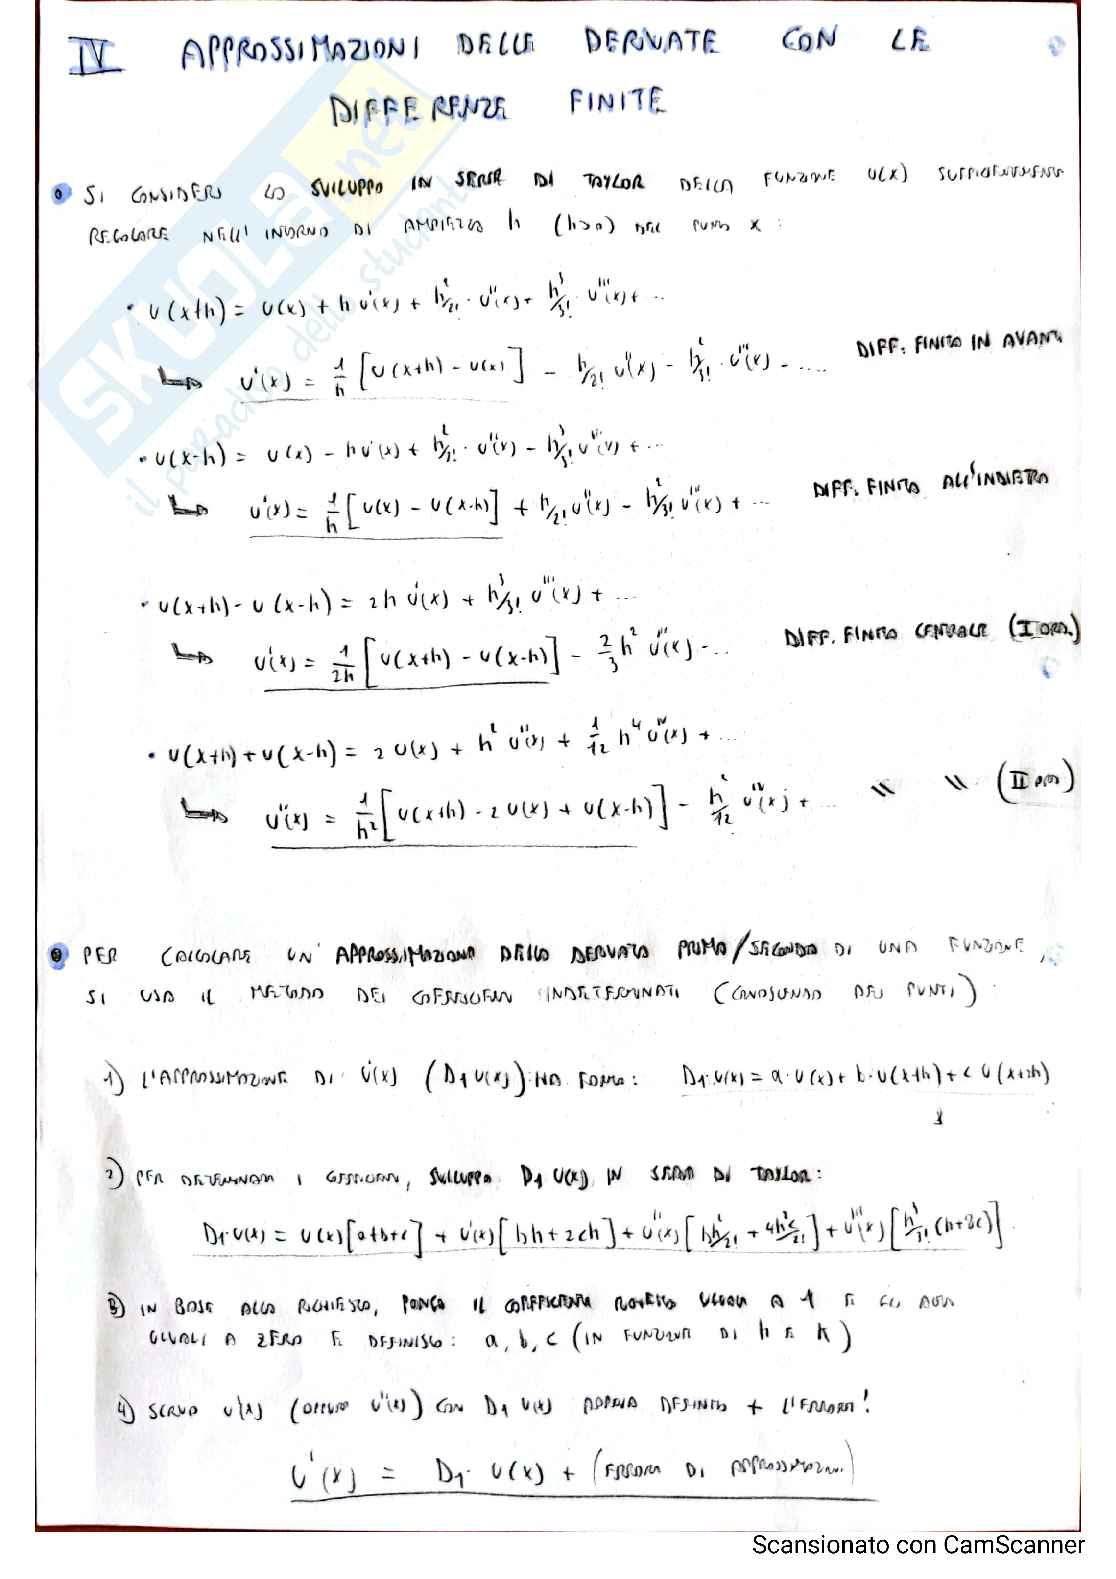 IV APPROSSIMAZIONI DELLE DERIVATE CON LE
DIFFERENZE FINITE
SI CONSIDERI LO SVILUPPO IN SERIE DI TAYLOR DELLA FUNZIONE U(X) SUFFICIENTEMENTE
REGOLARE NELL'INTORNO DI AMPIEZZA h (h>0) DEL PUNTO X :
• U(x+h) = U(x) + h U'(x) + h²/2! · U''(x) + h³/3! · U'''(x) + ...
U'(x) = 1/h [U(x+h) - U(x)] - h/2! U''(x) - h²/3! · U'''(x) - .... DIFF. FINITA IN AVANTI
• U(x-h) = U(x) - h U'(x) + h²/2! · U''(x) - h³/3! U'''(x) + ...
U'(x) = 1/h [U(x) - U(x-h)] + h/2! U''(x) - h²/3! U'''(x) + ... DIFF. FINITA ALL'INDIETRO
• U(x+h) - U(x-h) = 2h U'(x) + h³/3! U'''(x) + ...
U'(x) = 1/2h [U(x+h) - U(x-h)] - 2/3 h² U'''(x) - ... DIFF. FINITA CENTRALE (I ORD.)
• U(x+h) + U(x-h) = 2 U(x) + h² U''(x) + 1/12 h⁴ U^IV(x) + ...
U''(x) = 1/h² [U(x+h) - 2 U(x) + U(x-h)] - h²/12 U^IV(x) + ... \\ \\ (II ORD)
PER CALCOLARE UN'APPROSSIMAZIONE DELLA DERIVATA PRIMA/SECONDA DI UNA FUNZIONE,
SI USA IL METODO DEI COEFFICIENTI INDETERMINATI (CONOSCENDO DEI PUNTI)
1) L'APPROSSIMAZIONE DI U'(x) (D1 U(x)) HA FORMA: D1·U(x) = a·U(x) + b·U(x+h) + c U(x+2h)
2) PER DETERMINARE I COEFFICIENTI, SVILUPPO D1 U(x) IN SERIE DI TAYLOR:
D1·U(x) = U(x)[a+b+c] + U'(x)[bh+2ch] + U''(x)[bh²/2! + 4h²c/2!] + U'''(x)[h³/3! (b+8c)]
3) IN BASE ALLA RICHIESTA, PONGO IL COEFFICIENTE RICHIESTO UGUALE A 1 E GLI ALTRI
UGUALI A ZERO E DEFINISCO: a, b, c (IN FUNZIONE DI h E K)
4) SCRIVO U'(x) (OPPURE U''(x)) CON D1 U(x) APPENA DEFINITO + L'ERRORE!
U'(x) = D1· U(x) + (ERRORE DI APPROSSIMAZIONE)
SKUOLA.net
il paradiso dello studente
Scansionato con CamScanner